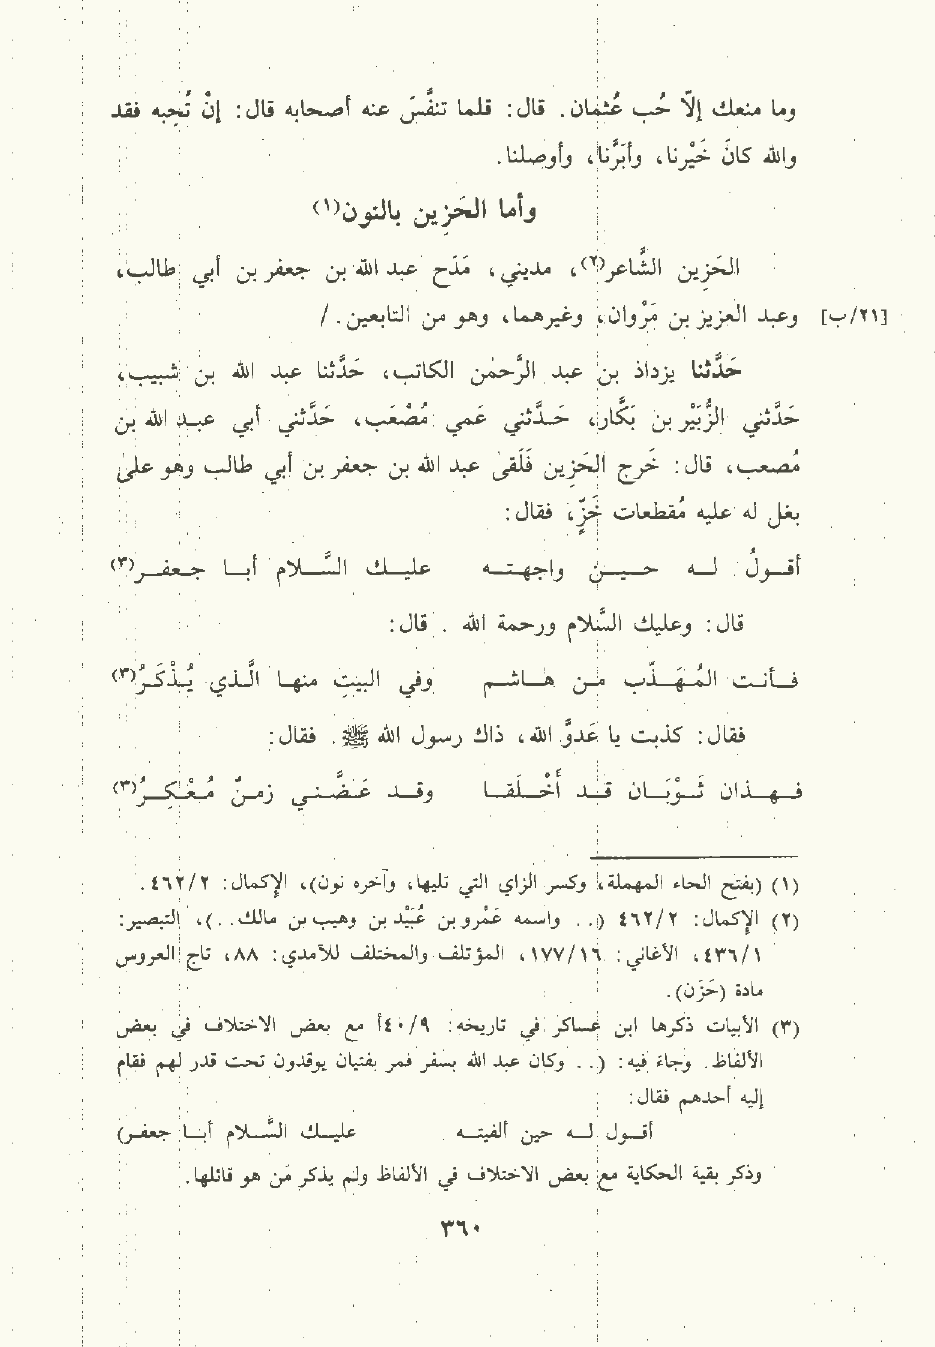 وما منعك إلاّ حُب عُثمان. قال: قلما تنفَّسَ عنه أصحابه قال: إنْ تُحبه فقد
والله كانَ خَيْرنا، وأبَرَّنا، وأوصلنا.
وأما الحَزِين بالنون(١)
الحَزِين الشَّاعر(٢)، مديني، مَدَح عبد الله بن جعفر بن أبي طالب،
[٢١/ب] وعبد العزيز بن مَرْوان، وغيرهما، وهو من التابعين. /
حَدَّثنا يزداذ بن عبد الرَّحمٰن الكاتب، حَدَّثنا عبد الله بن شبيب،
حَدَّثني الزُّبَيْر بن بَكَّار، حَدَّثني عَمي مُصْعَب، حَدَّثني أبي عبد الله بن
مُصعب، قال: خَرج الحَزِين فَلَقىٰ عبد الله بن جعفر بن أبي طالب وهو علىٰ
بغل له عليه مُقطعات خَزٍّ، فقال:
أقولُ له حين واجهته عليك السَّلام أبا جعفر(٣)
قال: وعليك السَّلام ورحمة الله . قال:
فأنت المُهَذّب من هاشم وفي البيتِ منها الَّذي يُذْكَرُ(٣)
فقال: كذبت يا عَدوَّ الله، ذاك رسول الله ﷺ. فقال:
فهذان ثَوْبَان قد أَخْلَقا وقد عَضَّني زمنٌ مُعْكِرُ(٣)
(١) (بفتح الحاء المهملة، وكسر الزاي التي تليها، وآخره نون)، الإكمال: ٤٦٢/٢.
(٢) الإكمال: ٤٦٢/٢ (.. واسمه عَمْرو بن عُبَيْد بن وهيب بن مالك..)، التبصير:
٤٣٦/١، الأغاني: ١٧٧/١٦، المؤتلف والمختلف للآمدي: ٨٨، تاج العروس
مادة (حَزَن).
(٣) الأبيات ذكرها ابن عساكر في تاريخه: ٤٠/٩أ مع بعض الاختلاف في بعض
الألفاظ. وجاء فيه: (.. وكان عبد الله بسفر فمر بفتيان يوقدون تحت قدر لهم فقام
إليه أحدهم فقال:
أقول له حين ألفيته عليك السَّلام أبا جعفر)
وذكر بقية الحكاية مع بعض الاختلاف في الألفاظ ولم يذكر مَن هو قائلها.
٣٦٠